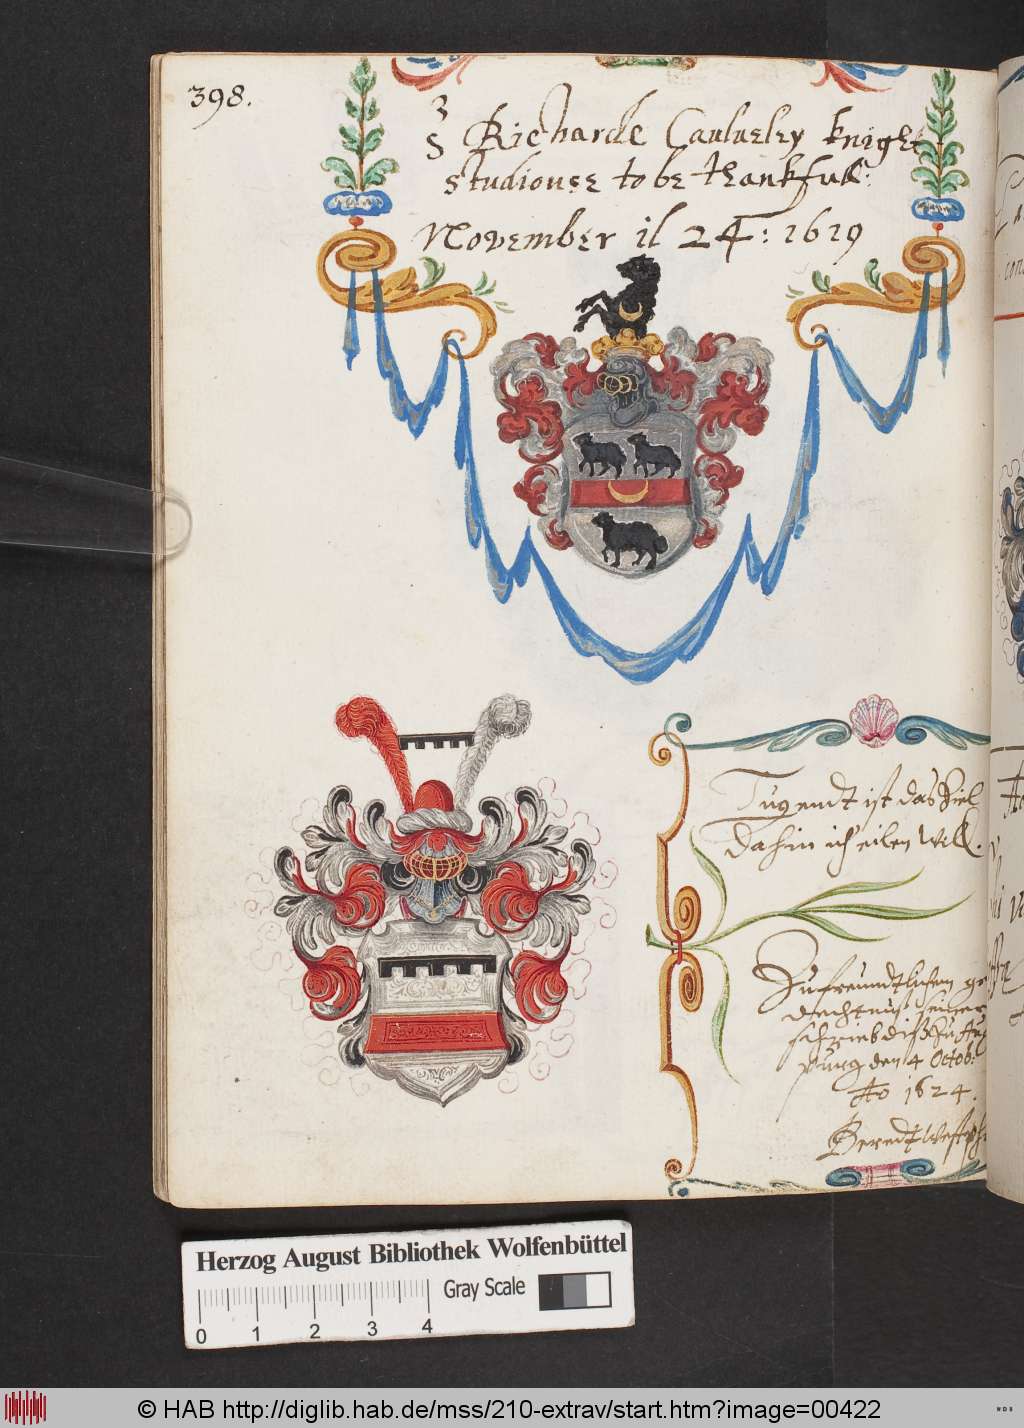 398.
S Richarde Caulueley knight
studiouse to be thankfull:
November il 24: 1619
Tugendt ist das Ziel
dahin ich eilen Will.
Zu freundtlichem ge
dechtnus seiner
schrieb diß Zu Aug
purg den 4 Octob:
Ao 1624.
Berendt Westph
Herzog August Bibliothek Wolfenbüttel
Gray Scale
0 1 2 3 4
© HAB http://diglib.hab.de/mss/210-extrav/start.htm?image=00422